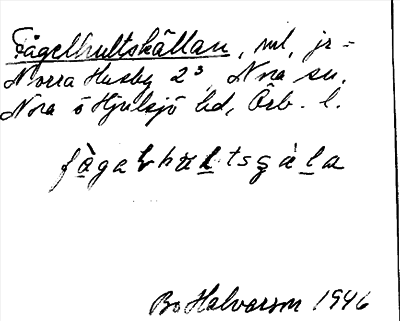 Fågelhultskällan, nl, jr =
Norra Husby 2³, Nora sn,
Nora o Hjulsjö hd, Örb. l.
fågalhultsgäla
Bo Halvarson 1946